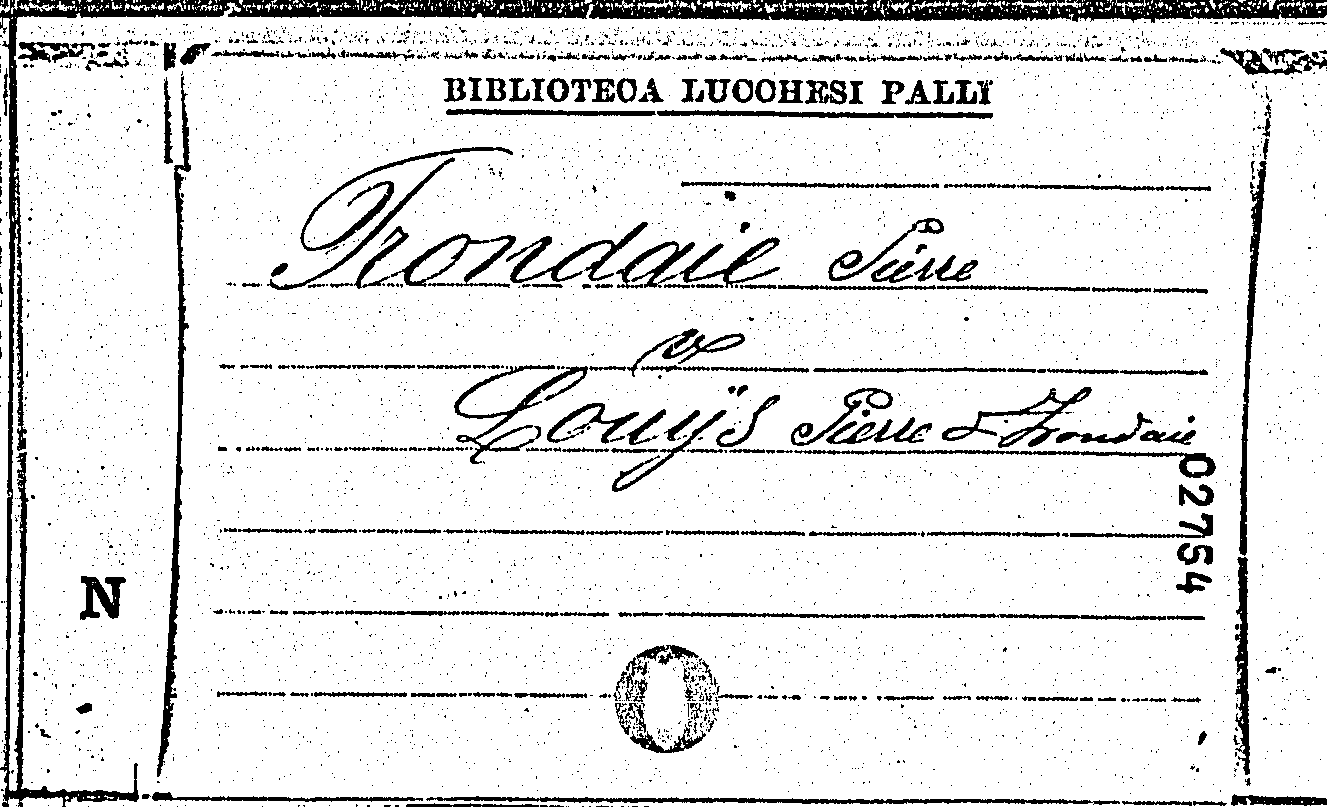 BIBLIOTECA LUCCHESI PALLI
Frondaie Pierre
V
Louÿs Pierre & Frondaie
02754
N